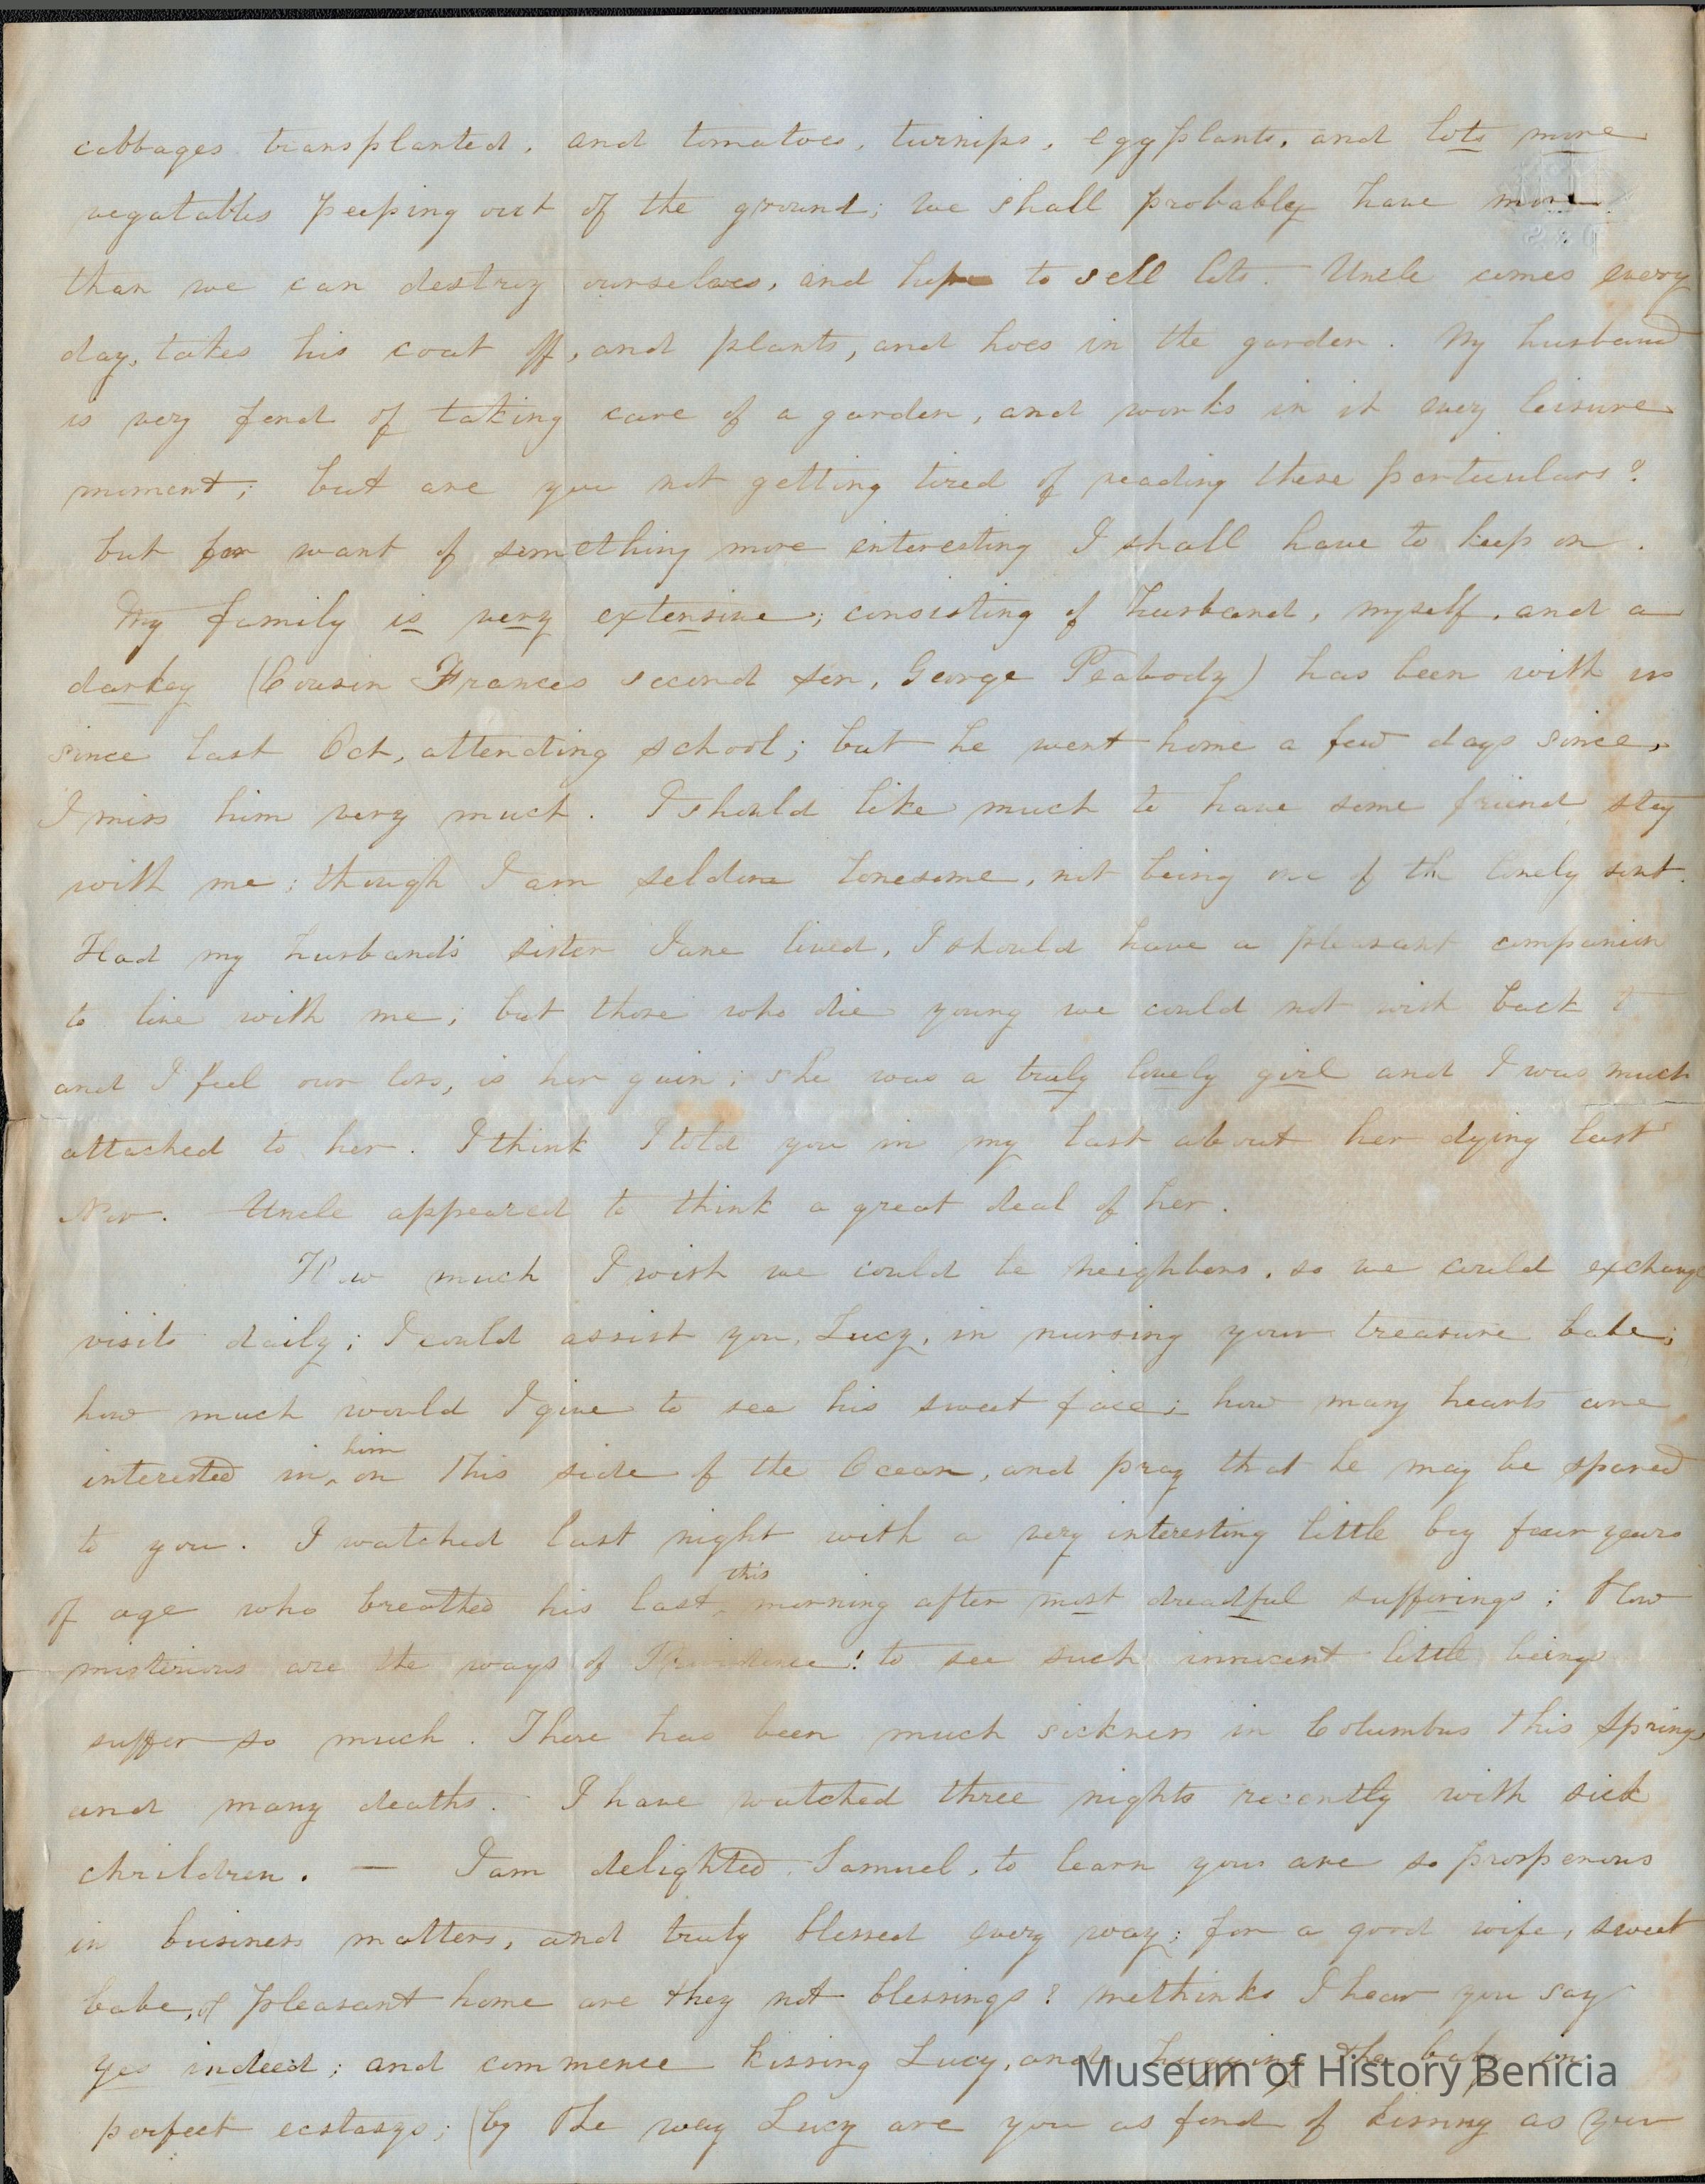 cabbages transplanted, and tomatoes, turnips, eggplants, and lots more
vegatables peeping out of the ground; we shall probably have more
than we can destroy ourselves, and hope to sell lots. Uncle comes every
day, takes his coat off, and plants, and hoes in the garden. My husband
is very fond of taking care of a garden, and works in it every leisure
moment; but are you not getting tired of reading these particulars?
but for want of something more interesting I shall have to keep on.
My family is very extensive; consisting of husband, myself, and a
darkey (Cousin Frances second son, George Peabody) has been with us
since last Oct, attending school; but he went home a few days since,
I miss him very much. I should like much to have some friend stay
with me; though I am seldom lonesome, not being one of the lonely sort.
Had my husband's sister Jane lived, I should have a pleasant companion
to live with me; but those who die young we could not wish back
and I feel our loss, is her gain; she was a truly lovely girl and I was much
attached to her. I think I told you in my last about her dying last
Nov. Uncle appeared to think a great deal of her.
How much I wish we could be neighbors, so we could exchange
visits daily; I could assist you, Lucy, in nursing your treasure babe;
how much would I give to see his sweet face; how many hearts are
interested in him on this side of the Ocean, and pray that he may be spared
to you. I watched last night with a very interesting little boy four years
of age who breathed his last this morning after most dreadful sufferings; How
misterious are the ways of Providence! to see such innocent little beings
suffer so much. There has been much sickness in Columbus this Spring
and many deaths. I have watched three nights recently with sick
chrildren. — I am delighted, Samuel, to learn you are so prosperous
in business matters, and truly blessed every way; for a good wife, sweet
babe, & pleasant home are they not blessings? methinks I hear you say
yes indeed; and commence kissing Lucy, and hugging the babe in
perfect ecstasys; (by the way Lucy are you as fond of kissing as your
Museum of History Benicia